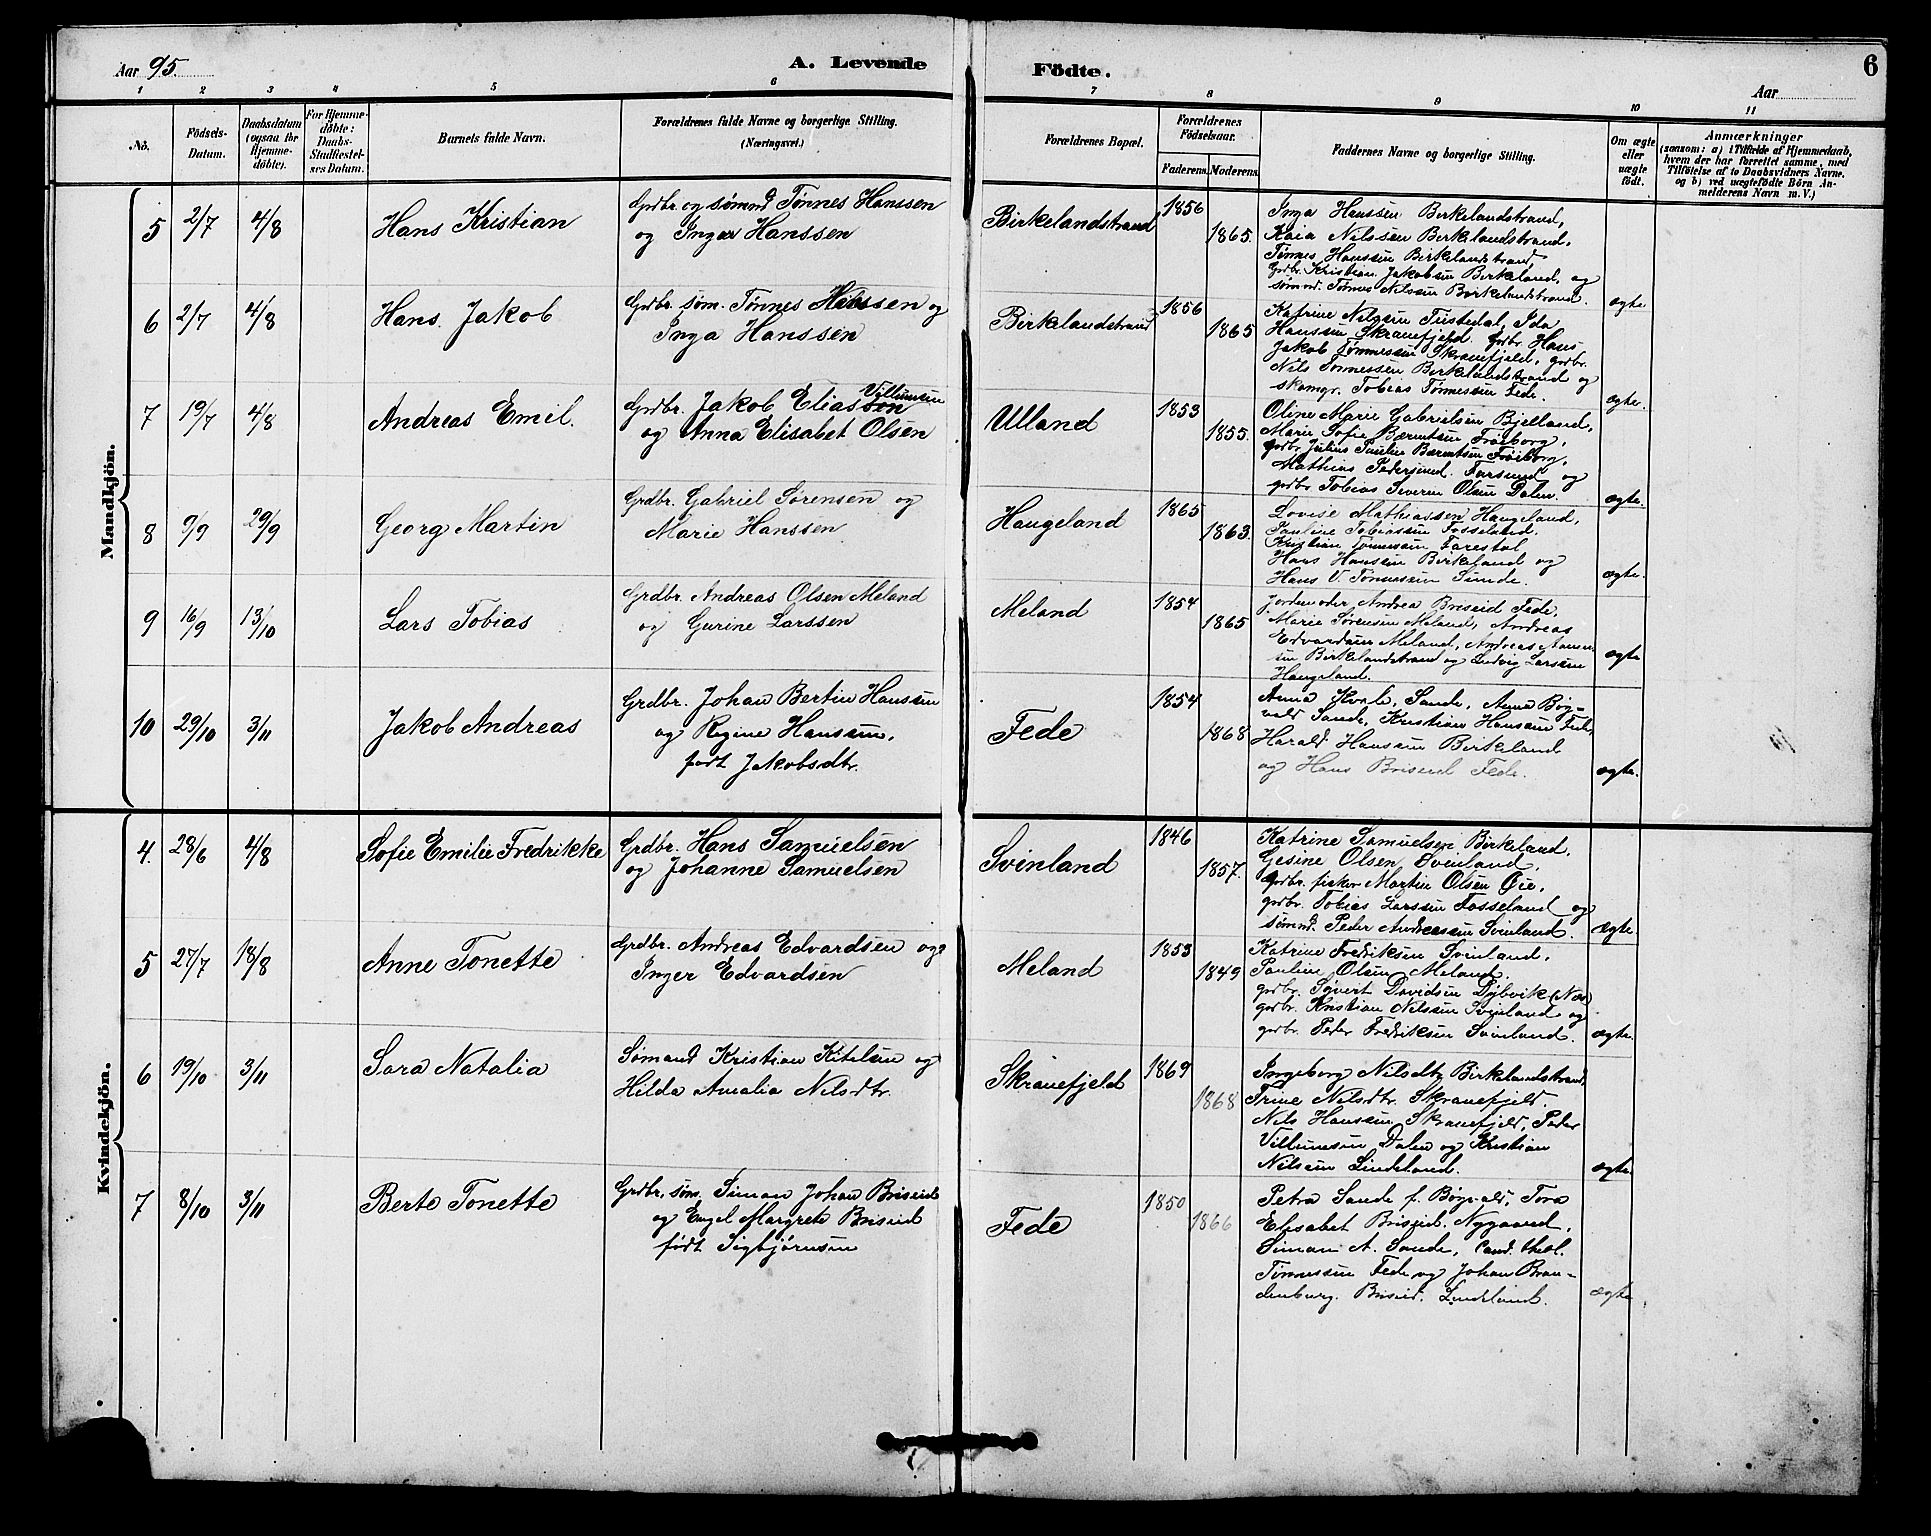 Aar 95.
A. Levende Födte.
6
Aar
1 2 3 4 5 6 7 8 9 10 11
No.
Födsels-Datum.
Daabsdatum (ogsaa for Hjemmedöbte).
For Hjemmedöbte: Daabs-Stadfæstelses Datum.
Barnets fulde Navn.
Forældrenes fulde Navne og borgerlige Stilling. (Næringsvei.)
Forældrenes Bopæl.
Forældrenes Födselsaar.
Faderens. Moderens.
Faddernes Navne og borgerlige Stilling.
Om ægte eller uægte født.
Anmærkninger
(saasom: a) i Tilfælde af Hjemmedaab, hvem der har forrettet samme, med Tilföielse af to Daabsvidners Navne, og b) ved uægtefödte Börn Anmelderens Navn m. V.)
Mandkjön.
5 2/7 4/8 Hans Kristian
Grdbr. og sømnd Tønnes Hanssen
og Inger Hanssen
Birkelandstrand 1856 1865.
Inga Hanssen Birkelandstrand,
Kaia Nilssen Birkelandstrand,
Tønnes Hanssen Birkelandstrand,
Grdbr. Kristian Jakobsen Birkeland, og
sømnd. Tønnes Nilssen Birkelandstrand.
ægte.
6 2/7 4/8 Hans Jakob
Grdbr. søm. Tønnes Hanssen og
Inga Hanssen
Birkelandstrand 1856 1865
Katrine Nilssen Tistedal, Ida
Hanssen Skranefjeld. Grdbr. Hans
Jakob Tønnessen Skranefjeld, grdbr.
Nils Tønnessen Birkelandstrand og
Tobias Tønnessen Fede.
ægte.
7 19/7 4/8 Andreas Emil.
Grdbr. Jakob Eliassen Villumsen
og Anna Elisabet Olsen
Ulland 1853 1855.
Oline Marie Gabrielsen Bjelland,
Marie Sofie Bærntsen Frøiborg,
grdbr. Julius Paulin Bærntsen Frøiborg,
Mathias Pedersen Farsund og
grdbr. Tobias Severin Olsen Dalen.
ægte.
8 9/9 29/9 Georg Martin
Grdbr. Gabriel Sørensen og
Marie Hanssen
Haugeland 1865 1863.
Lovise Mathiassen Haugeland,
Pauline Tobiassen Fosseland.
Kristian Tønnessen Farestal
Hans Hanssen Birkeland og
Hans V. Tønnessen Sunde.
ægte.
9 16/9 13/10 Lars Tobias
Grdbr. Andreas Olsen Meland
og Gurine Larssen
Meland 1854 1865
Jordemoder Andrea Briseid Fede,
Marie Sørensen Meland, Andreas
Edvardsen Meland, Andreas Aanen-
sen Birkelandstrand og Ludvig Larssen
Haugeland.
ægte
10 29/10 3/11 Jakob Andreas
Grdbr. Johan Bertin Hanssen
og Regine Hanssen,
født Jakobsdtr.
Fede 1854 1868
Anna Sande, Anna Bøg-
vald Sande, Kristian Hanssen Fede,
Harald Hanssen Birkeland
og Hans Briseid Fede.
ægte.
Kvindekjön.
4. 28/6 4/8 Sofie Emilie Fredrikke
Grdbr. Hans Samuelsen
og Johanne Samuelsen
Svinland 1846 1857.
Katrine Samuelsen Birkeland,
Gesine Olsen Svinland,
grdbr. fisker Martin Olsen Øie,
grdbr. Tobias Larssen Fosseland og
sømnd. Peder Andreassen Svinland.
ægte.
5 27/7 18/8 Anne Tonette
Grdbr. Andreas Edvardsen og
Inger Edvardsen
Meland 1853 1849
Katrine Fredriksen Svinland,
Pauline Olsen Meland.
grdbr. Syvert Davidsen Dybvik (Næs)
grdbr. Kristian Nilssen Svinland og
grdbr. Peder Fredriksen Svinland.
ægte.
6 19/10 3/11 Sara Natalia
Sømand Kristian Kitelsen og
Hilda Amalia Nilsdtr.
Skranefjeld 1869 1868
Ingeborg Nilsdtr. Birkelandstrand
Trine Nilsdtr. Skranefjeld.
Nils Hanssen Skranefjeld, Peder
Villumsen Dalen og Kristian
Nilssen Lindeland.
ægte.
7 8/10 3/11 Berte Tonette
Grdbr. søm. Simon Johan Briseid
og Engel Margrete Briseid
født Sigbjørnsen
Fede 1850 1866
Petra Sande f. Bøgvald, Tora
Elisabet Briseid. Nygaard,
Simon A. Sande, Cand. theol.
Tønnessen Fede og Johan Bran-
denburg. Briseid. Lindeland.
ægte.